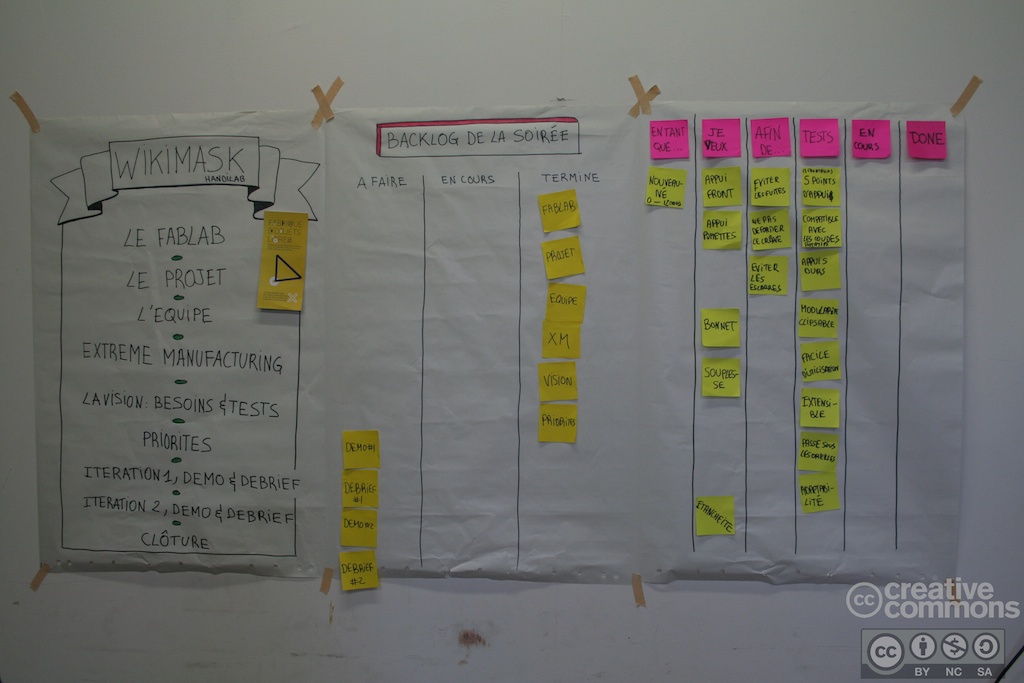 WIKIMASK
HANDILAB
LE FABLAB
LE PROJET
L'EQUIPE
EXTREME MANUFACTURING
LA VISION: BESOINS & TESTS
PRIORITES
ITERATION 1, DEMO & DEBRIEF
ITERATION 2, DEMO & DEBRIEF
CLÔTURE
BACKLOG DE LA SOIRÉE
A FAIRE
EN COURS
TERMINE
DEMO #1
DEBRIEF
#1
DEMO #2
DEBRIEF
#2
FABLAB
PROJET
EQUIPE
XM
VISION
PRIORITES
EN TANT
QUE...
JE
VEUX
AFIN
DE...
TESTS
EN
COURS
DONE
NOUVEAU-
NÉ
APPUI
FRONT
APPUI
POMETTES
BONNET
SOUPLES-
SE
ETANCHEITE
EVITER
LES FUITES
NE PAS
DEFORMER
LE CRÂNE
EVITER
LES
ESCARRES
5 POINTS
D'APPUIS
COMPATIBLE
AVEC
LES COUDES
APPUIS
DURS
MODULABLE
CLIPSABLE
FACILE
D'UTILISATION
EXTENSI-
BLE
PASSE SOUS
LES OREILLES
ADAPTABI-
LITÉ
creative
commons
cc
BY NC SA